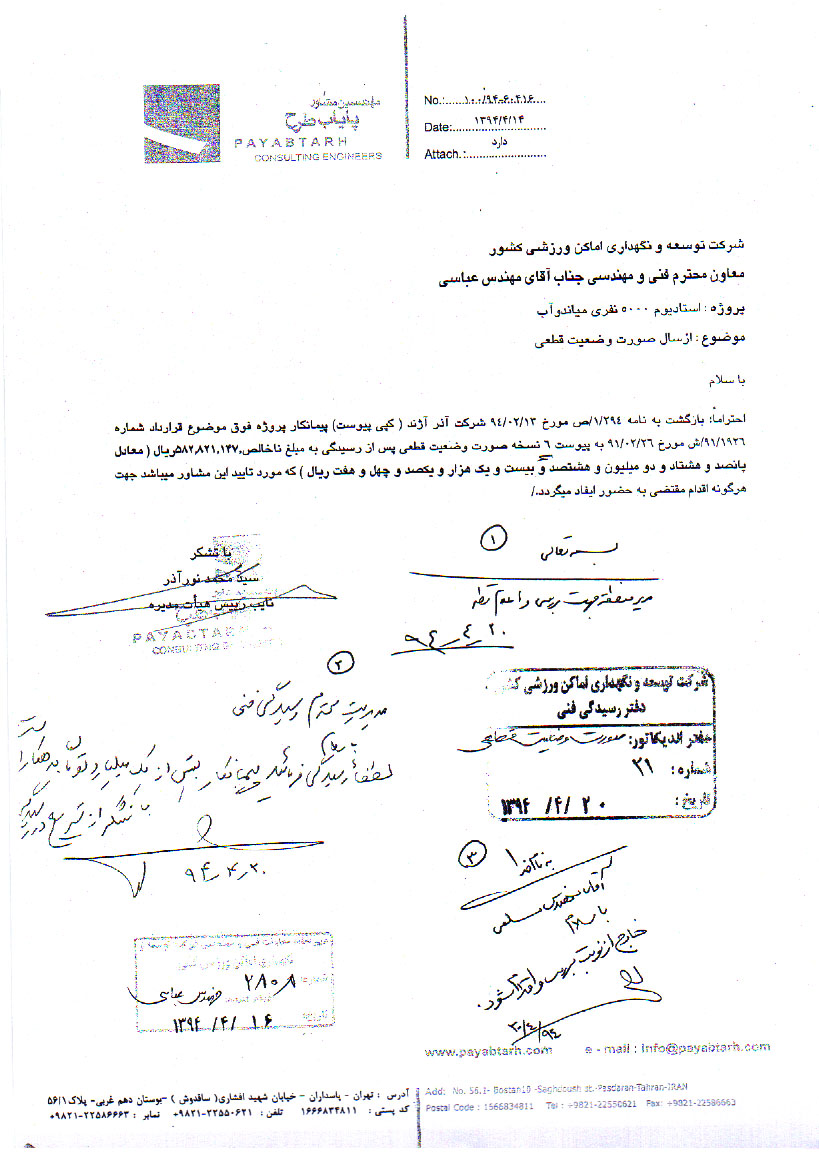 مهندسین مشاور
پایاب طرح
PAYABTARH
CONSULTING ENGINEERS
No.:.....۱۰۰/۹۴-۶۰۴۱۶....
Date:.....۱۳۹۴/۴/۱۴
دارد
Attach.:........................
شرکت توسعه و نگهداری اماکن ورزشی کشور
معاون محترم فنی و مهندسی جناب آقای مهندس عباسی
پروژه : استادیوم ۵۰۰۰ نفری میاندوآب
موضوع : ارسال صورت وضعیت قطعی
با سلام
احتراماً؛ بازگشت به نامه ۱/۲۹۴/ص مورخ ۹۴/۰۲/۱۳ شرکت آذر آژند ( کپی پیوست) پیمانکار پروژه فوق موضوع قرارداد شماره
۹۱/۱۹۲۶/ش مورخ ۹۱/۰۲/۲۶ به پیوست ۶ نسخه صورت وضعیت قطعی پس از رسیدگی به مبلغ ناخالص ۵۸۲,۸۲۱,۱۴۷,ریال ( معادل
پانصد و هشتاد و دو میلیون و هشتصد و بیست و یک هزار و یکصد و چهل و هفت ریال ) که مورد تایید این مشاور میباشد جهت
هرگونه اقدام مقتضی به حضور ایفاد میگردد./
با تشکر
سید محمد نورآذر
نایب رئیس هیأت مدیره
PAYABTARH
CONSULTING
۱
بسمه تعالی
مدیر منطقه جهت بررسی و اعلام نظر
۹۴/۴/۲۰
۲
مدیریت محترم رسیدگی فنی
با سلام
لطفاً رسیدگی فرمائید پیمانکار بیش از یک میلیارد تومان بدهکار است
با تشکر از تسریع در رسیدگی
۹۴/۴/۲۰
شرکت توسعه و نگهداری اماکن ورزشی کشور
دفتر رسیدگی فنی
دفتر اندیکاتور: صورت وضعیت قطعی
شماره: ۲۱
تاریخ: ۱۳۹۴ /۴/ ۲۰
۳
آقای مهندس
با سلام
خارج از نوبت بررسی و اقدام شود.
۹۴/۴/۲۰
شماره: ۲۸۰۸
مهندس عباسی
تاریخ: ۱۳۹۴ /۴/ ۱۶
www.payabtarh.com e - mail : Info@payabtarh.com
آدرس : تهران - پاسداران - خیابان شهید افشاری( ساقدوش ) -بوستان دهم غربی- پلاک۵۶/۱
کد پستی : ۱۶۶۶۸۳۴۸۱۱ تلفن : ۲۲۵۵۰۶۲۱-۰۹۸۲۱ نمابر : ۲۲۵۸۶۶۶۳-۰۹۸۲۱
Add: No. 56.1- Bostan10 -Saghdoush st.-Pasdaran-Tahran-IRAN
Postal Code : 1666834811 Tel : +9821-22550621 Fax: +9821-22586663